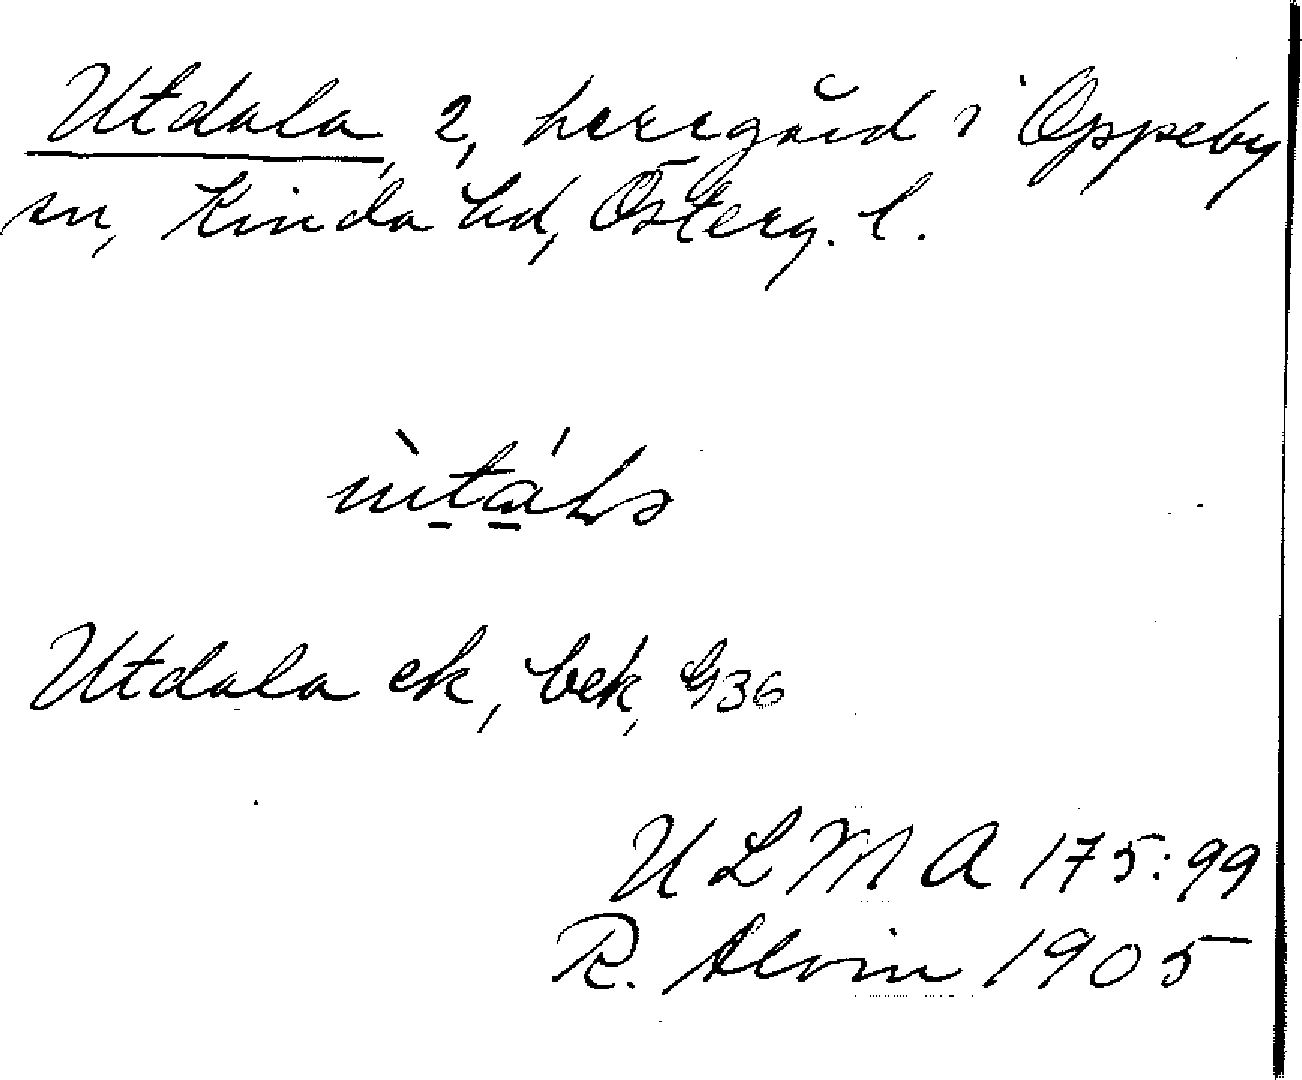 Utdala, 2, herregård i Oppeby
sn, Kinda hd, Österg. l.
Utdala ek, bek, G36
ULMA 175:99
R. Alvin 1905